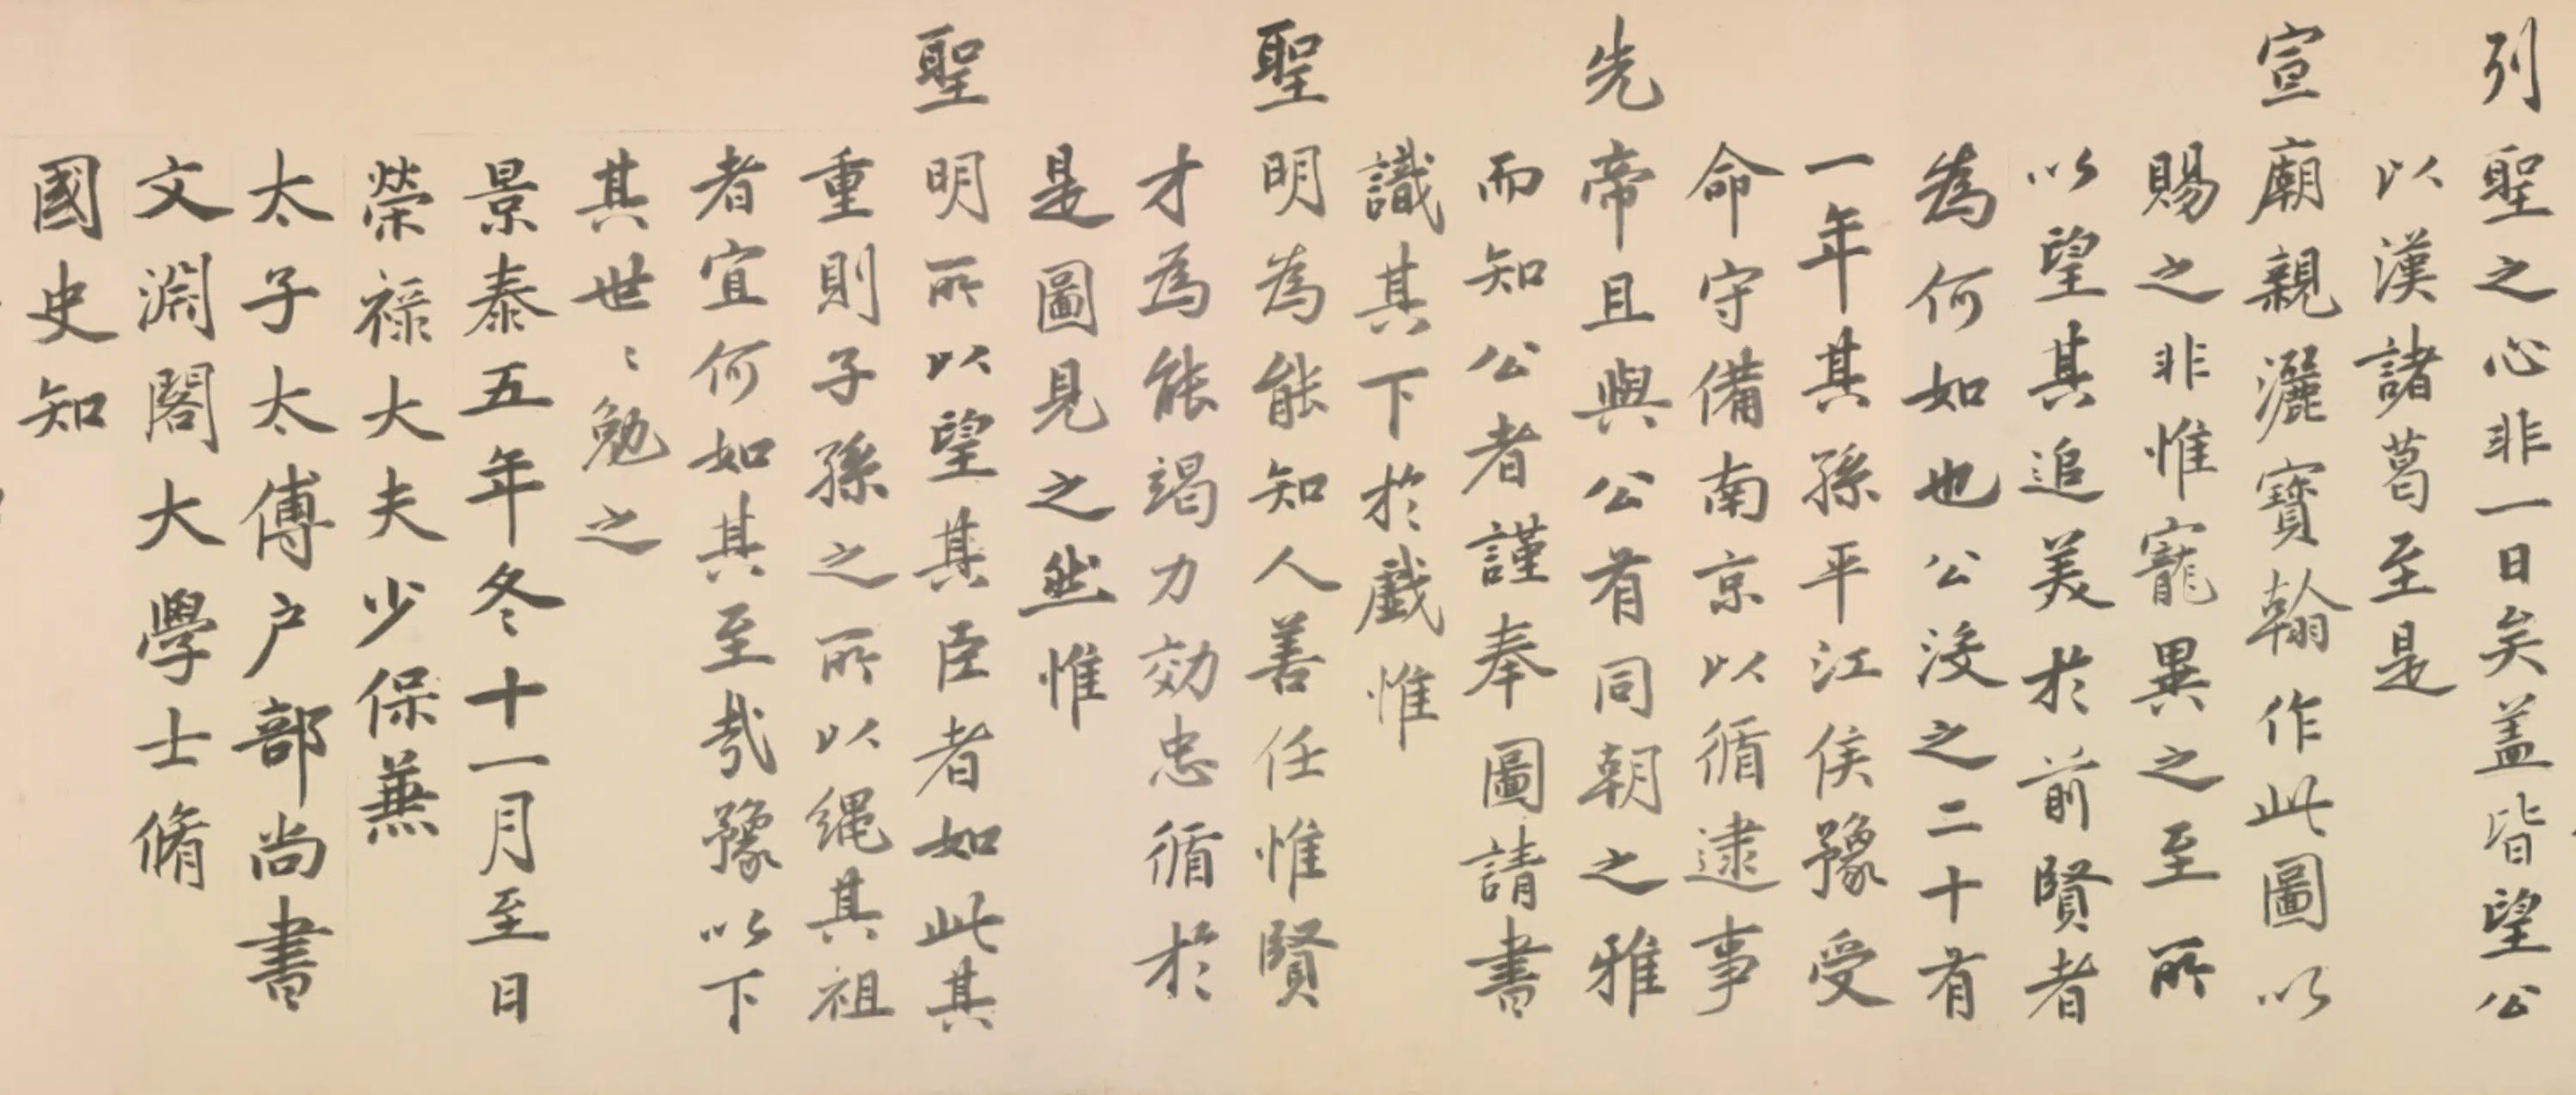 列聖之心非一日矣盖皆望公
以漢諸葛至是
宣廟親灑寶翰作此圖以
賜之非惟寵異之至所
以望其追美於前賢者
為何如也公没之二十有
一年其孫平江侯豫受
命守備南京以循逮事
先帝且與公有同朝之雅
而知公者謹奉圖請書
識其下於戲惟
聖明為能知人善任惟賢
才為能竭力効忠循於
是圖見之然惟
聖明所以望其臣者如此其
重則子孫之所以繩其祖
者宜何如其至哉豫以下
其世〻勉之
景泰五年冬十一月至日
榮祿大夫少保兼
太子太傅户部尚書
文淵閣大學士脩
國史知